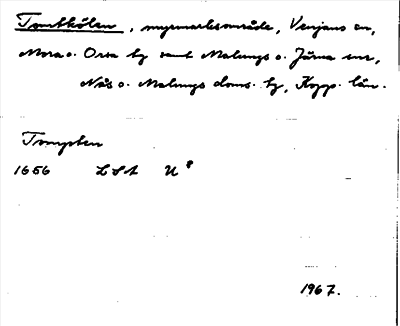 Tomtkölen, myrmarksområde, Venjans sn,
Mora o. Orsa tg samt Malungs o. Järna snr,
Nås o. Malungs doms. tg, Kopp. län.
Tompten
1656 LSA U⁸
1967.